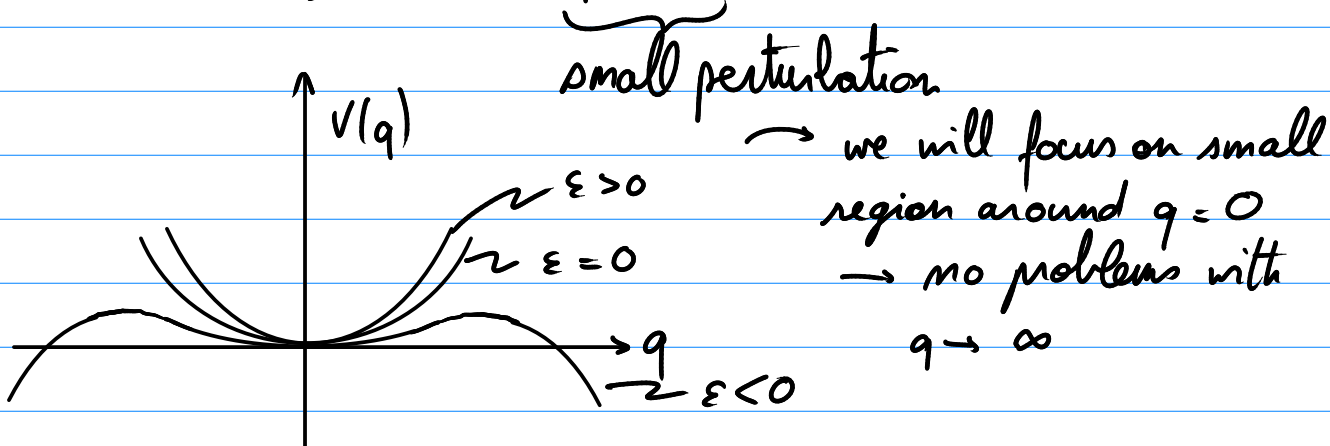 small perturbation
V(q)
→ we will focus on small
ε > 0
region around q = 0
ε = 0
→ no problems with
q
q → ∞
ε < 0